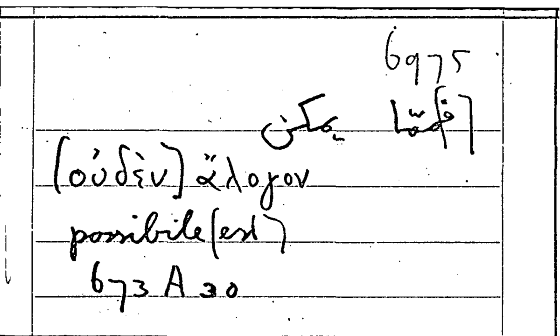 6975
[فممّا يمكن
[οὐδὲν] ἄλογον
possibile [est]
673 A 30